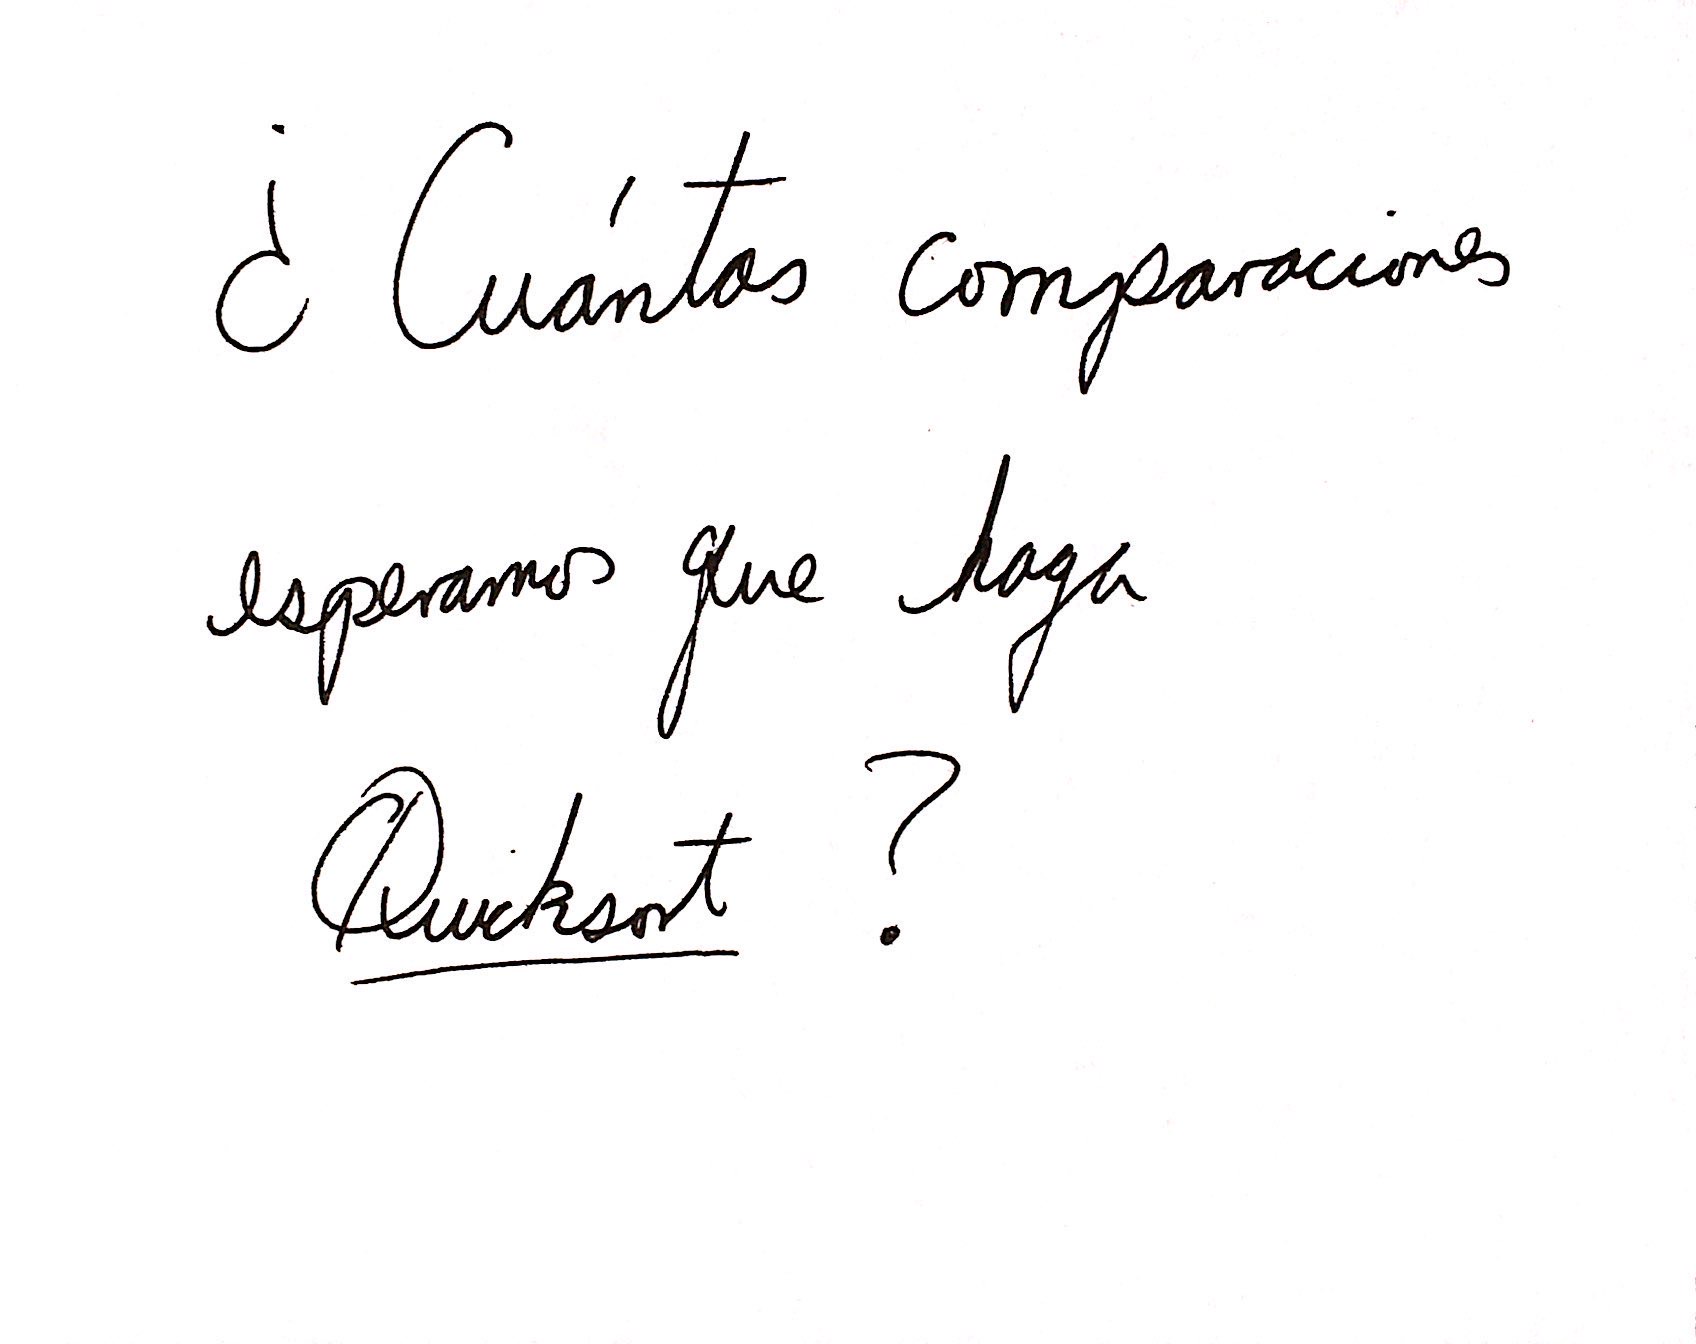 ¿Cuántas comparaciones
esperamos que haga
Quicksort?